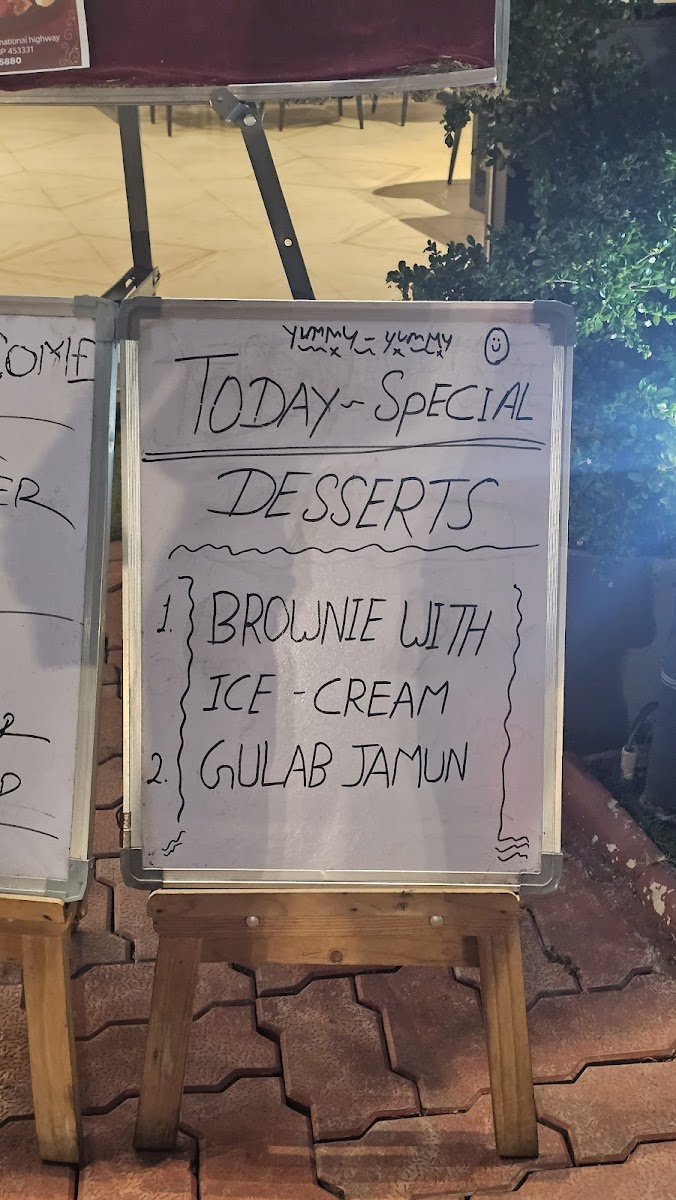 national highway
P 453331
5880
COME
ER
D
YUMMY - YUMMY
TODAY ~ SPECIAL
DESSERTS
1. BROWNIE WITH
ICE - CREAM
2. GULAB JAMUN